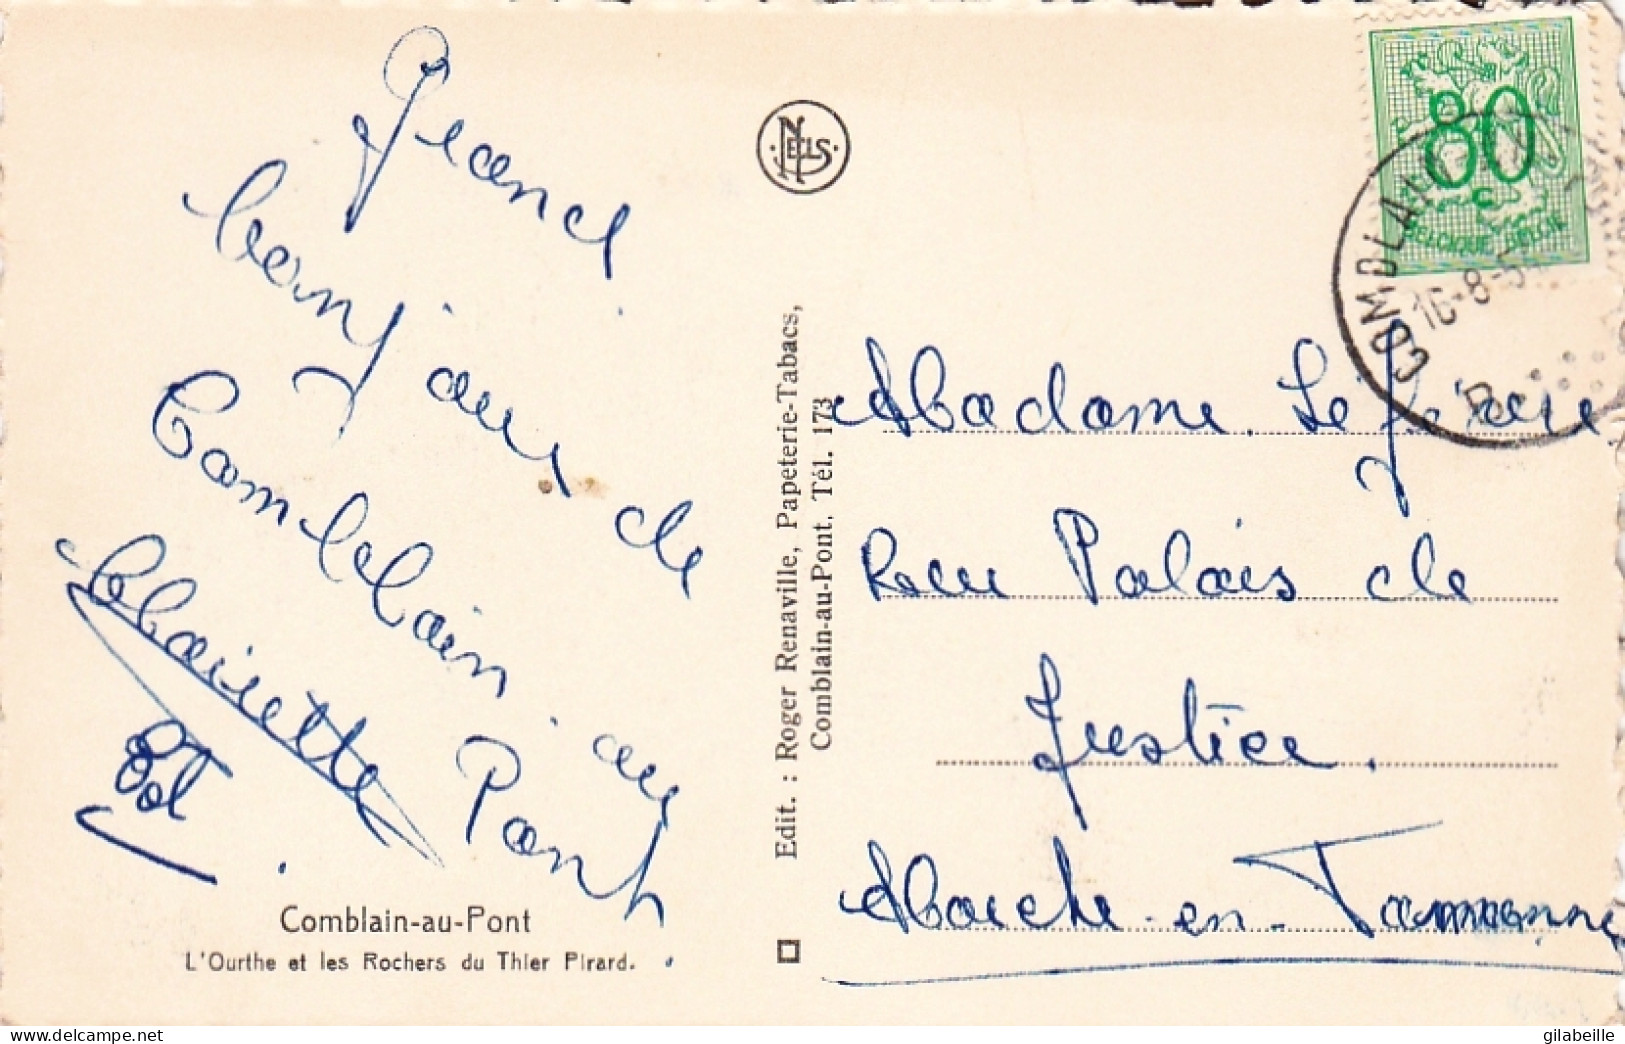 Grand
bonjour de
Comblain au
Pont
Clairette
Comblain-au-Pont
L'Ourthe et les Rochers du Thier Pirard.
NELS
Edit. : Roger Renaville, Papeterie-Tabacs,
Comblain-au-Pont. Tél. 173
80
BELGIQUE BELGIE
16-8-5
Madame Lejeune
Rue Palais de
Justice.
Marche-en-Famenne
gilabeille